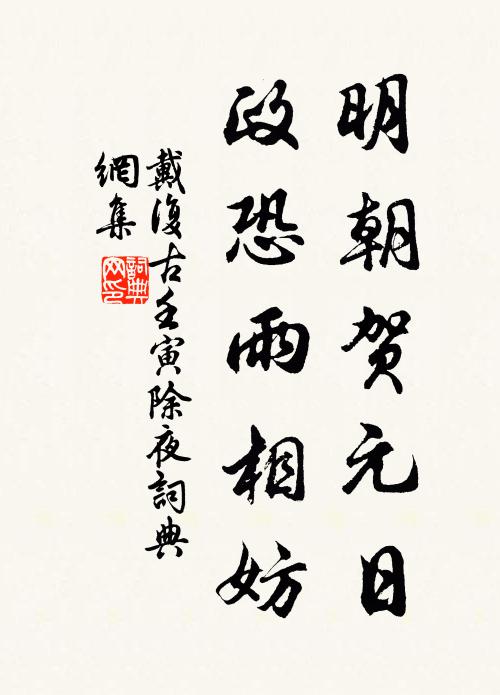 明朝贺元日
政恐雨相妨
戴復古壬寅除夜詞典
網集
詞典
网印